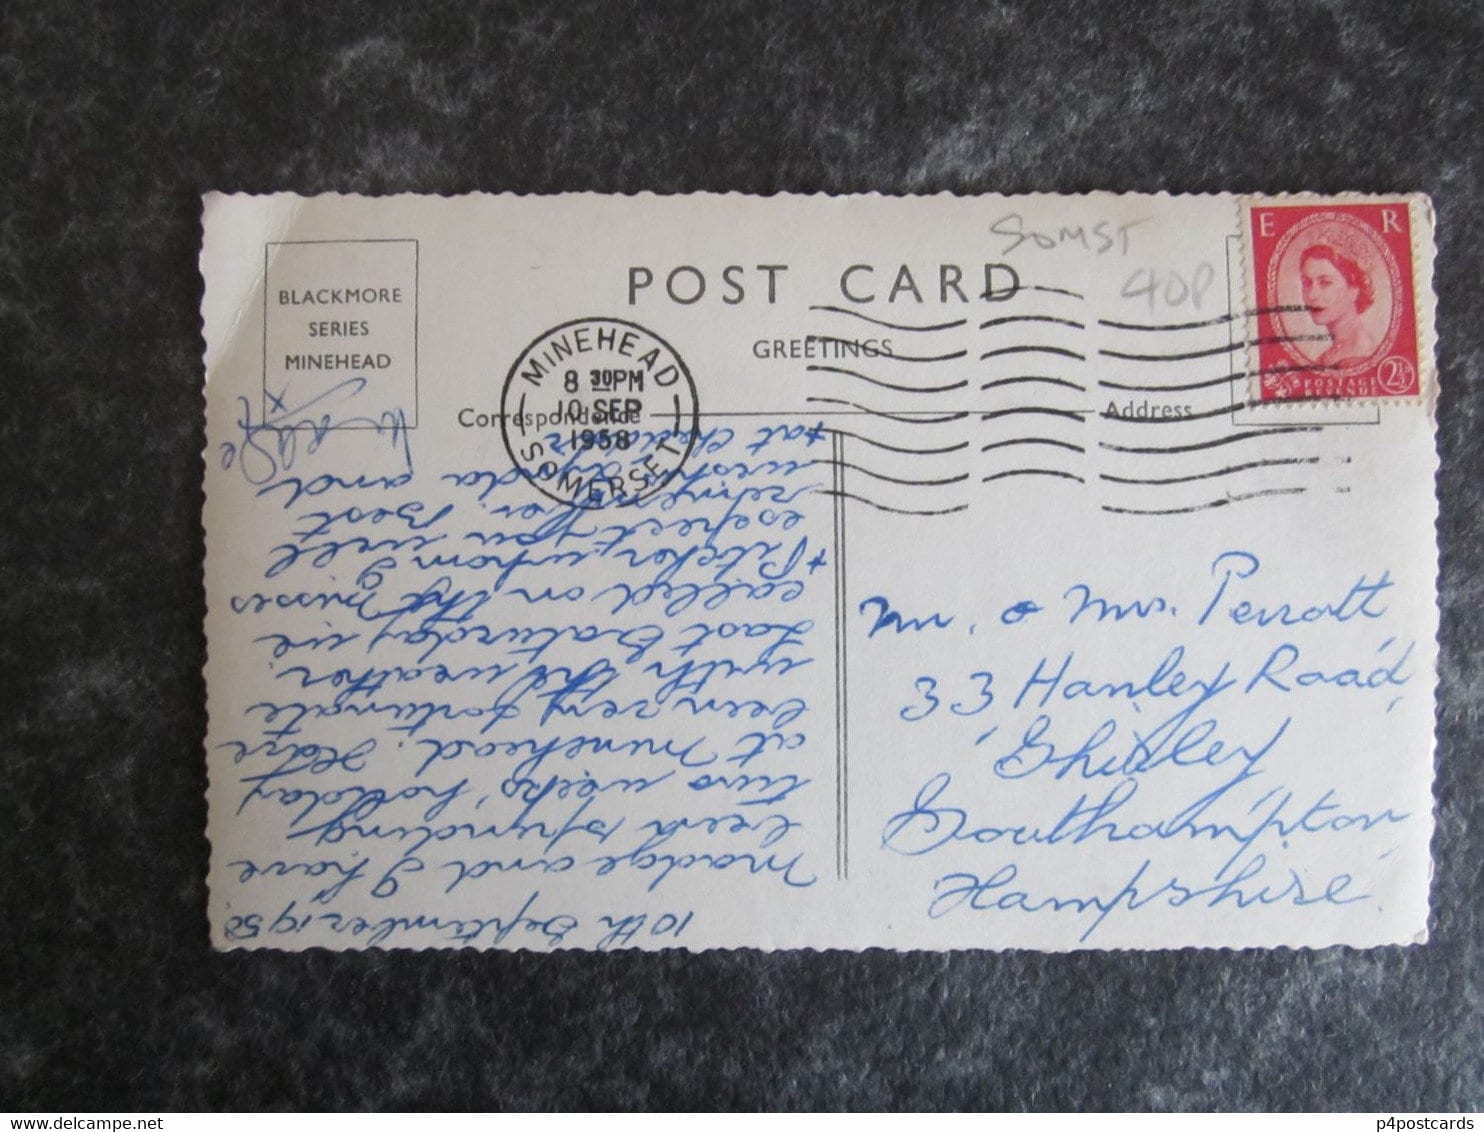 SOMST
40P
POST CARD
GREETINGS
BLACKMORE
SERIES
MINEHEAD
MINEHEAD
8 30PM
10 SEP
1958
SOMERSET
Correspondence
Address
E R
POSTAGE
REVENUE
2½
Mr. & Mrs. Perrott
33 Hanley Road,
Shirley
Southampton,
Hampshire.
10th September 1958
Madge and I have
been spending
two weeks' holiday
at Minehead. Have
been very fortunate
with the weather.
Last Saturday we
called on the Misses
* Pitcher, whom I
expect you will
remember. Best
wishes, and
* at Cheddar
www.delcampe.net
p4postcards